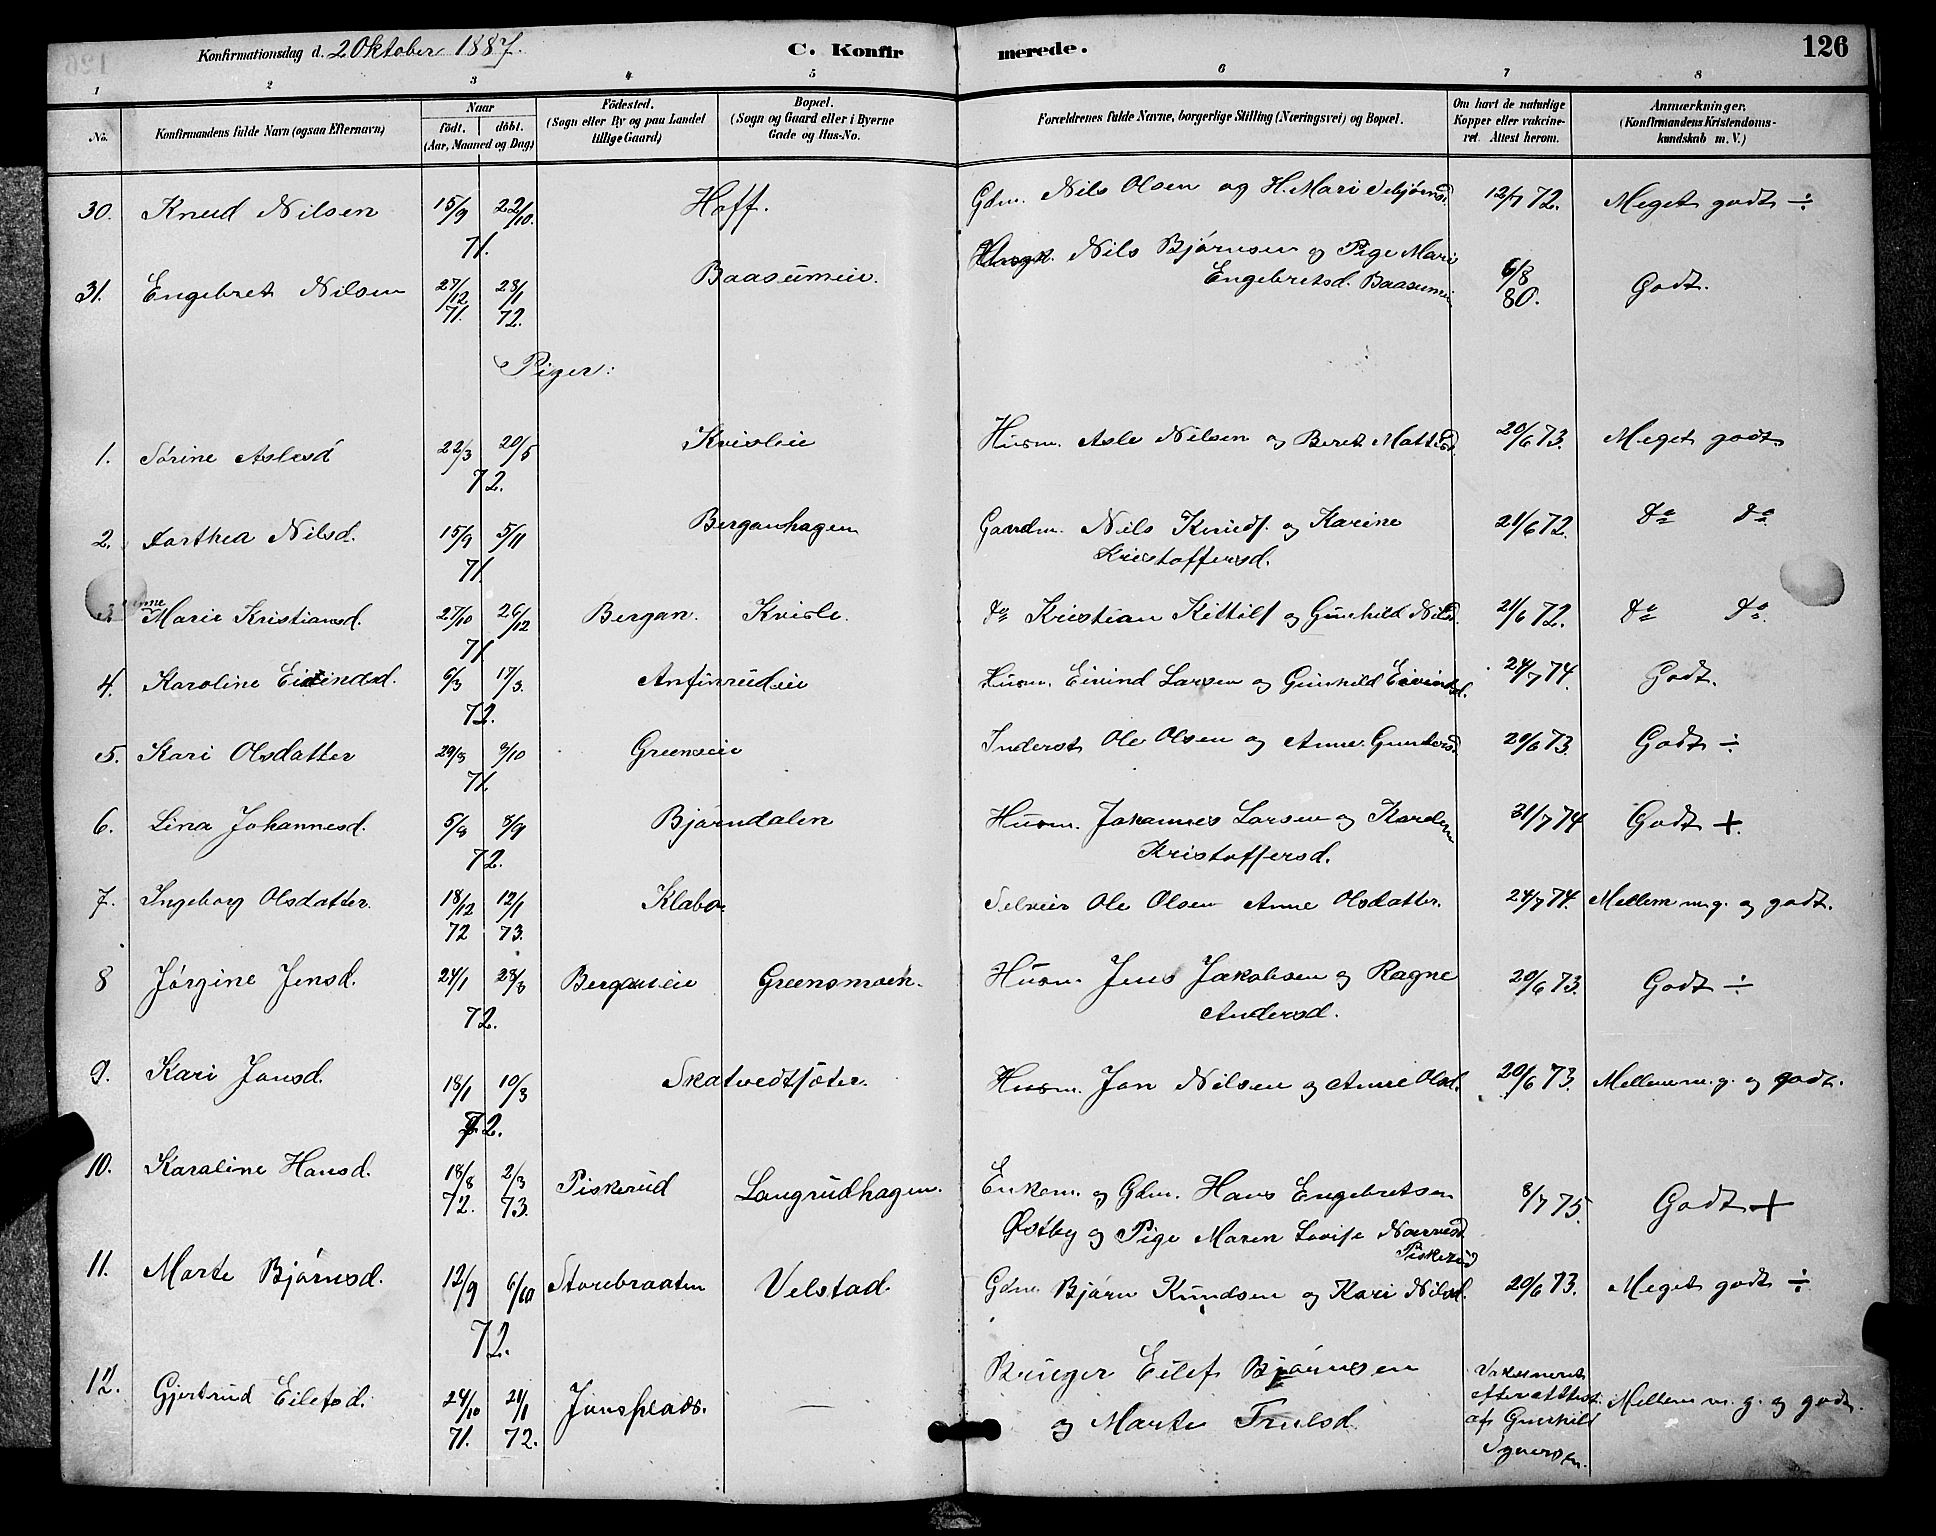 Konfirmationsdag d. 2 Oktober 1887.
C. Konfirmerede.
126
1 2 3 4 5 6 7 8
No. Konfirmandens fulde Navn (ogsaa Efternavn) Naar födt. döbt. (Aar, Maaned og Dag) Födested. (Sogn eller By og paa Landet tillige Gaard) Bopæl. (Sogn og Gaard eller i Byerne Gade og Hus-No. Forældrenes fulde Navne, borgerlige Stilling (Næringsvei) og Bopæl. Om havt de naturlige Kopper eller vakcineret. Attest herom. Anmærkninger. (Konfirmandens Kristendomskundskab m. V.)
30. Knud Nilsen 15/9 22/10. 71. Hoff. Gdm. Nils Olsen og H. Mari 12/7 72. Meget godt ÷
31. Engebret Nilsen 27/12 71. 28/1 72. Baasumeie. Ungk. Nils Björnsen og Pige Mari
Engebretsd. Baasumeie 6/8 80. Godt.
Piger:
1. Sörine Aslesd 22/3 20/5 72. Kvisleie Husm. Asle Nilsen og Beret Mattisd. 20/6 73. Meget godt
2. Dorthea Nilsd. 15/9 5/11 71. Berganhagen Gaardm. Nils Knuds. og Karine
Kristoffersd. 21/6 72. do do
3. Anne Marie Kristiansd. 27/10 26/12 71. Bergan. Kvisle. do Kristian Kittils. og Gunhild Nilsd. 21/6 72. do do
4. Karoline Eivindsd. 6/3 17/3. 72. Anfinrudeie Husm. Eivind Larsen og Gunhild Eivindsd. 24/7 74. Godt.
5. Kari Olsdatter 29/8 9/10 71. Greenseie Inderst Ole Olsen og Anne Gundersd. 20/6 73 Godt ÷
6. Lina Johannesd. 5/8 8/9 72. Björndalen Husm. Johannes Larsen og Karen
Kristoffersd. 31/7 74 Godt +.
7. Ingeborg Olsdatter. 18/12 72 12/1 73. Klabo. Selveier Ole Olsen Anne Olsdatter. 24/7 74. Mellem m.g. og godt.
8 Jörgine Jensd. 24/1 28/3 72. Berganeie Greensmoen. Husm. Jens Jakobsen og Ragne
Andersd. 20/6 73. Godt ÷
9. Kari Jonsd. 18/1 10/3 72. Skatvedtsæter. Husm. Jon Nilsen og Anne Olsd. 20/6 73. Mellem m.g. og godt.
10. Karoline Hansd. 18/8 72. 2/3 73. Piskerud Langrudhagen. Enkem. og Gdm. Hans Engebretsen
Østby og Pige Maren Lovise
Piskerud 8/7 75. Godt +
11. Marte Björnsd. 12/9 6/10 72. Storebraaten Velstad Gdm. Björn Knudsen og Kari Nilsd. 20/6 73. Meget godt ÷
12. Gjertrud Eilefsd. 24/10 71. 21/1 72. Jonsplads. — Bruger Eilef Björnsen
og Marte Trulsd. Vakcineret efter attest af Gunhild Syversen. Mellem m.g. og godt.